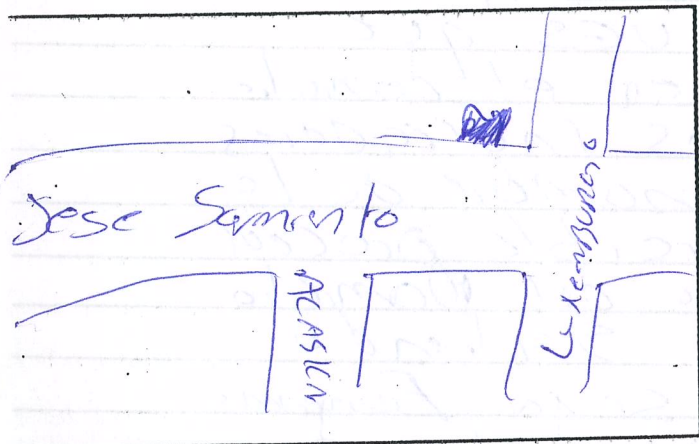 Jese Samento
ACASICN
Luxemburgo